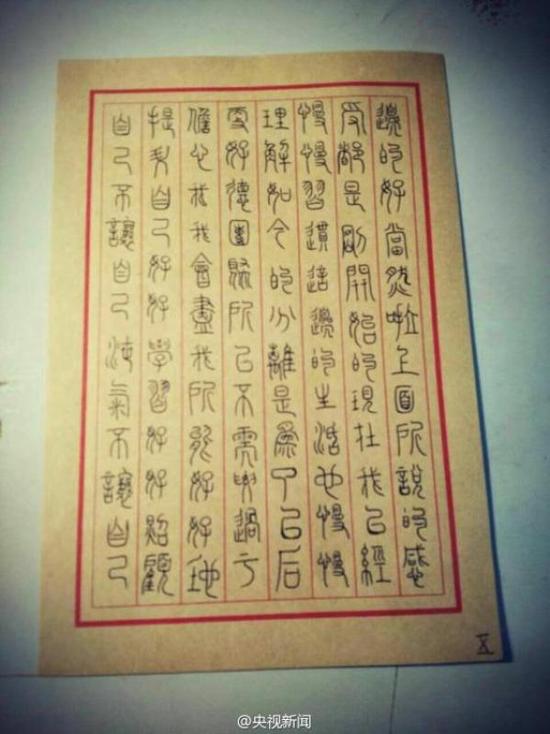 邊的好當然啦上面所說的感
受都是剛開始的現在我已經
慢慢習遦這邊的生活也慢慢
理解如今的分離是為了以后
更好德團聚所以不需要過于
擔心我我會盡我所能好好地
自己好好學習好好照顧
自己不讓自己 氣不讓自己
五
@央视新闻